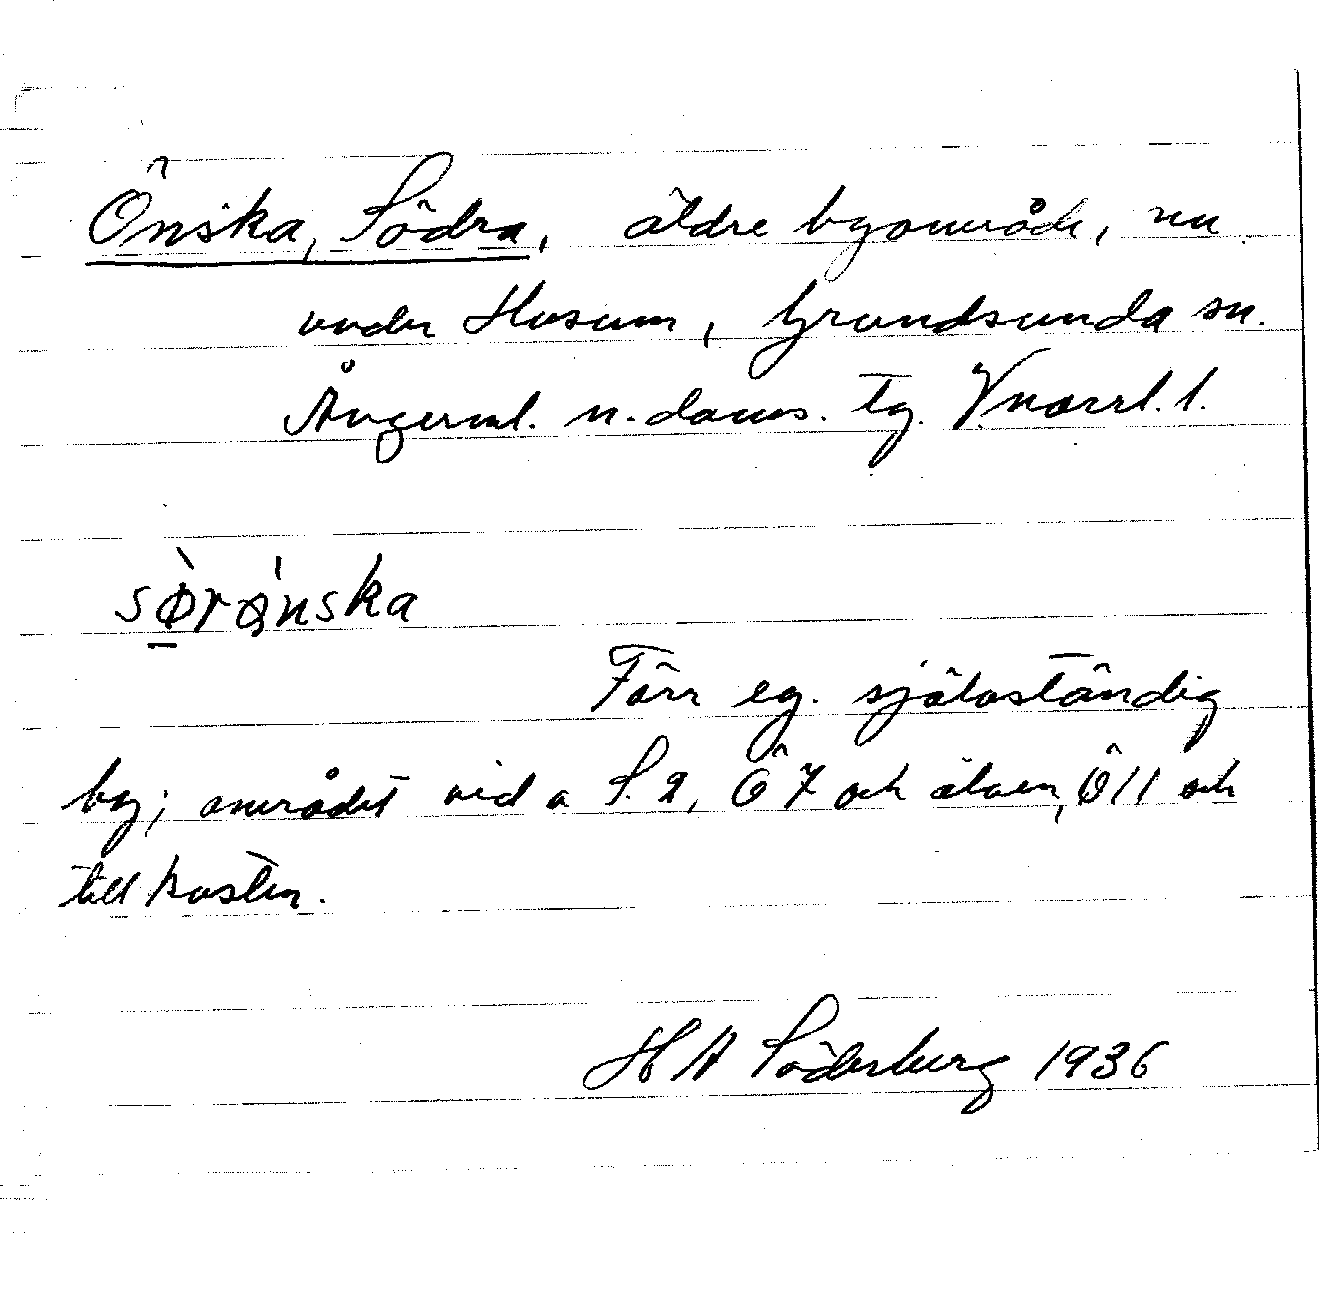 Önska, Södra, äldre byområde, nu
under Husum, Grundsunda sn.
Ångerml. n. doms. tg. V.norrl. l.
sør ønska
Förr eg. självständig
by; området vid a S. 2, Ö 7 och älven, Ö 11 och
till kusten.
H A Söderberg 1936